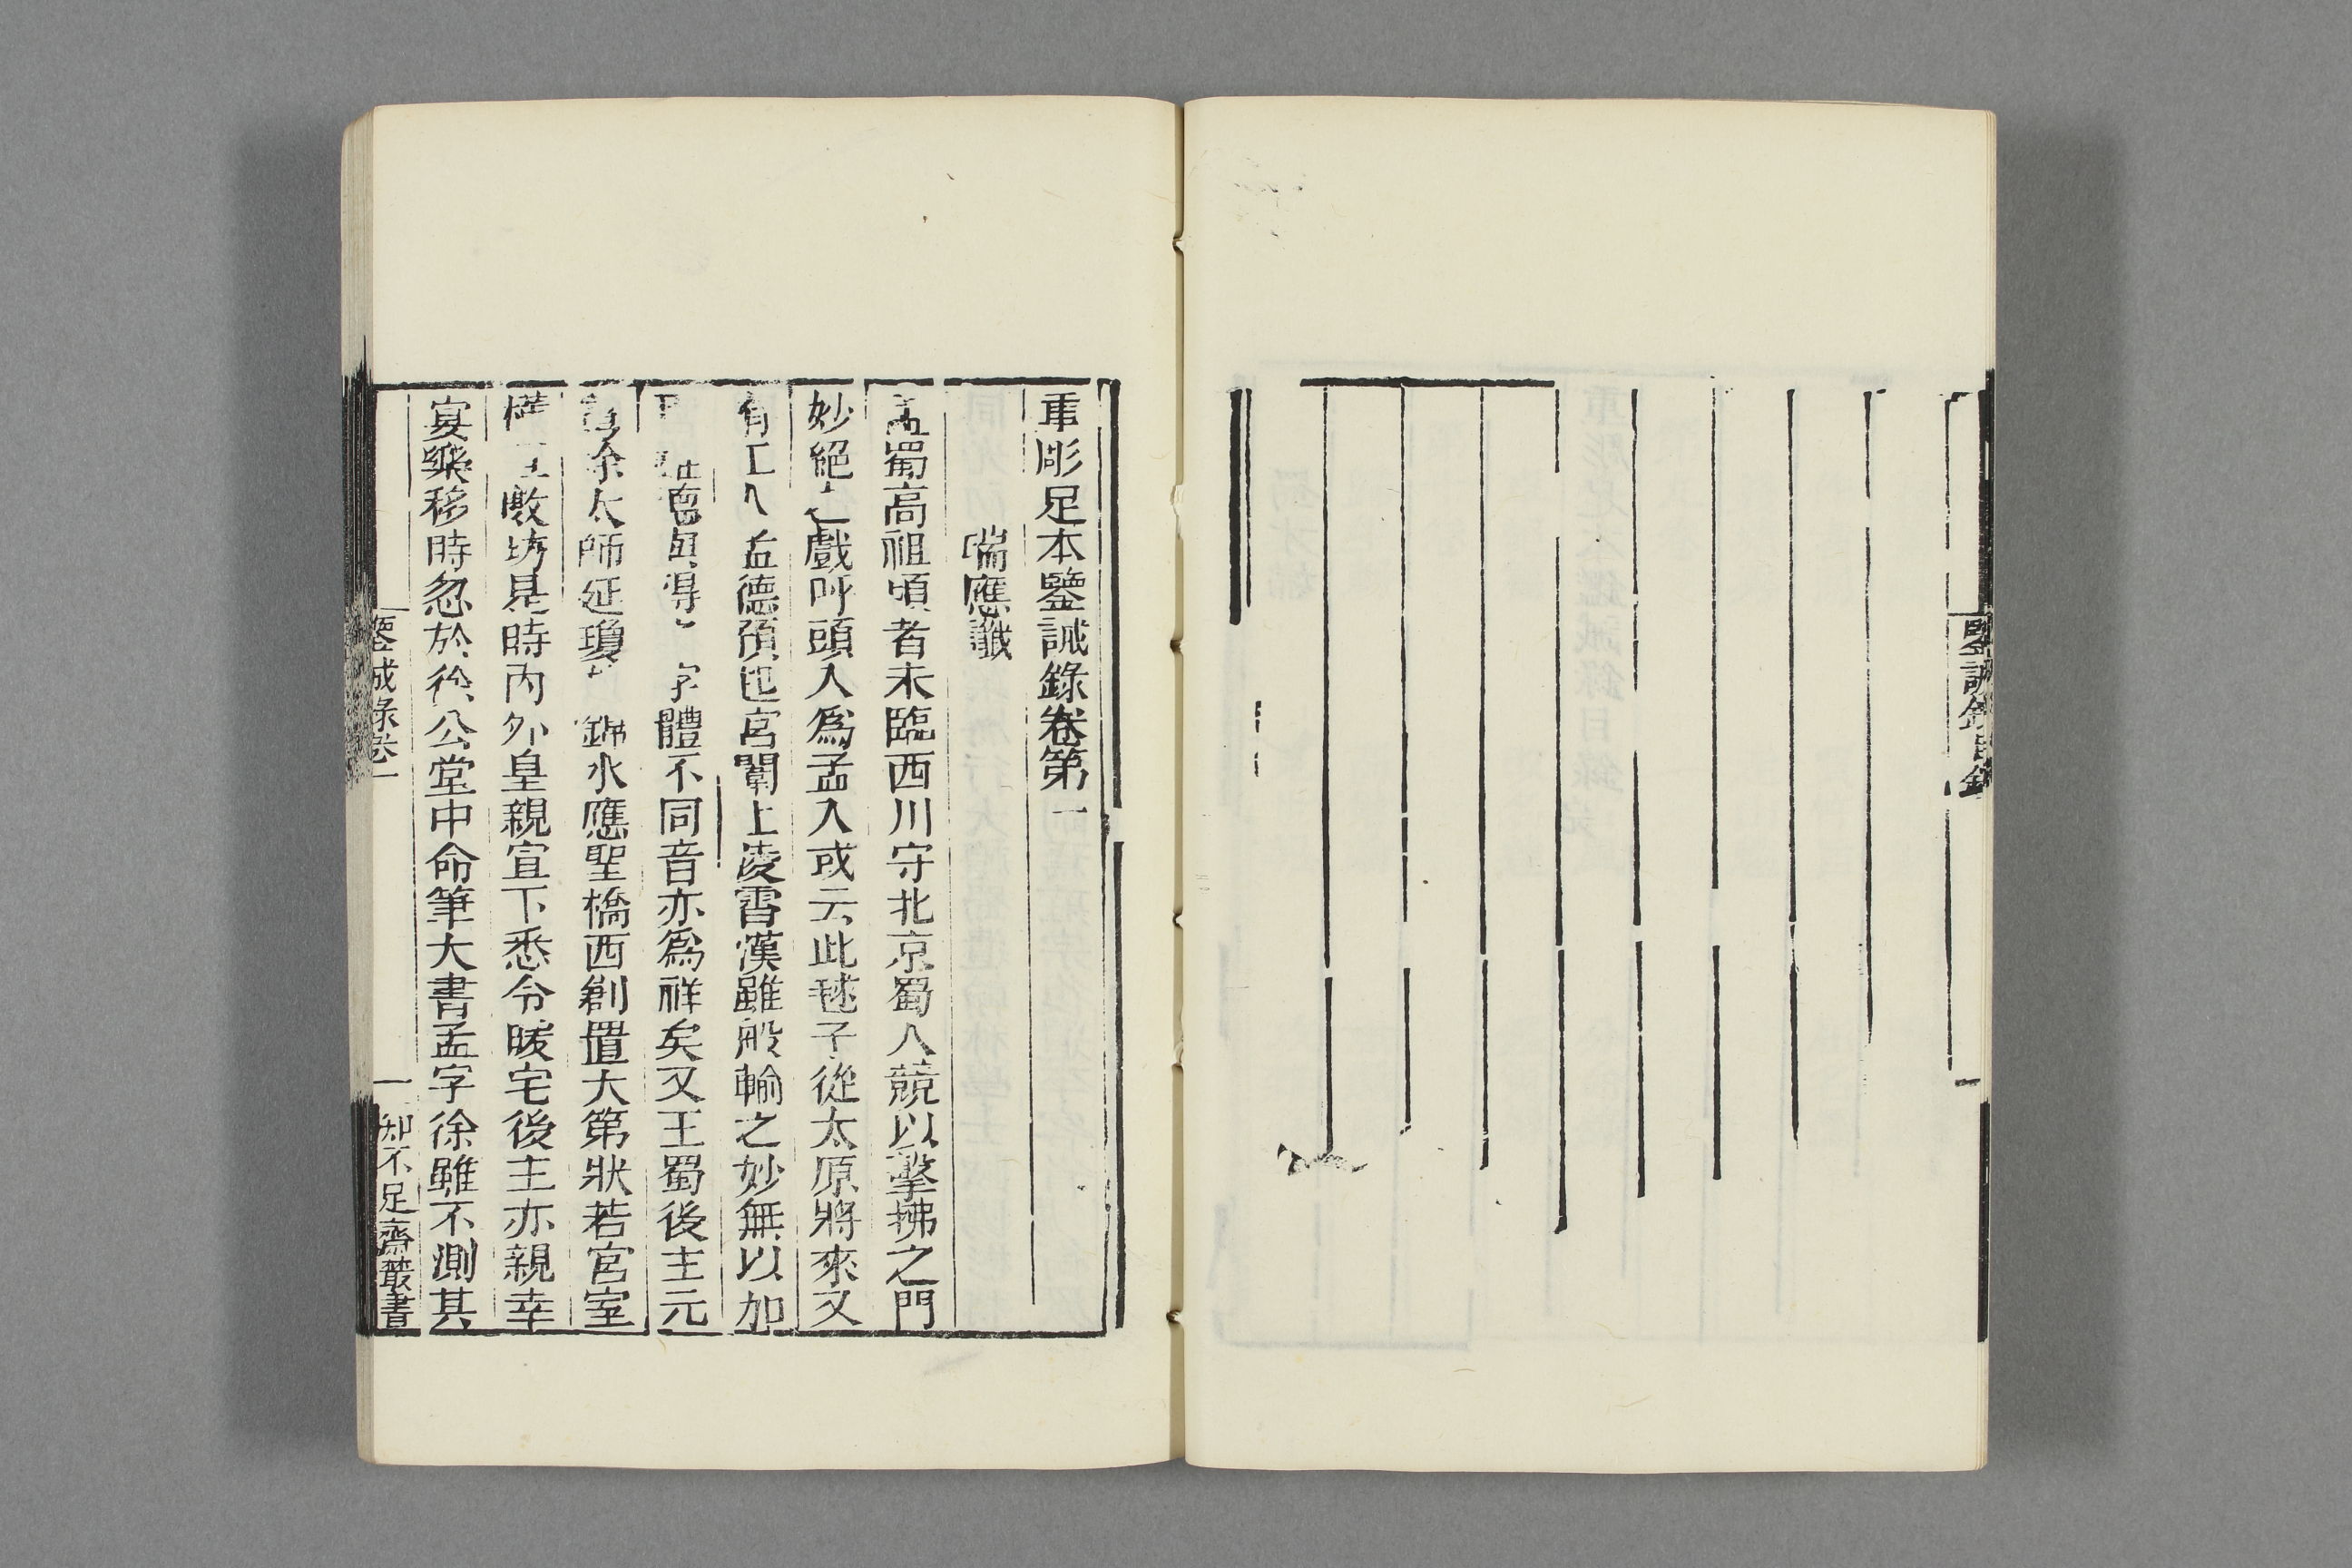 鑒誡錄目錄
重彫足本鑒誡錄卷第一
喘應讖
孟蜀高祖頃者未臨西川守北京蜀人競以擊拂之門
妙絕之戲呼頭入爲孟入或云此毬子從太原將來又
有工人孟德預也宮闕上凌霄漢雖般輸之妙無以加
德與得字體不同音亦爲祥矣又王蜀後主元
徐太師延瓊 錦水應聖橋西創置大第狀若宮室
敎坊見時內外皇親宣下悉令暖宅後主亦親幸
宴樂移時忽於徐公堂中命筆大書孟字徐雖不測其
鑒誡錄卷一
一
知不足齋叢書